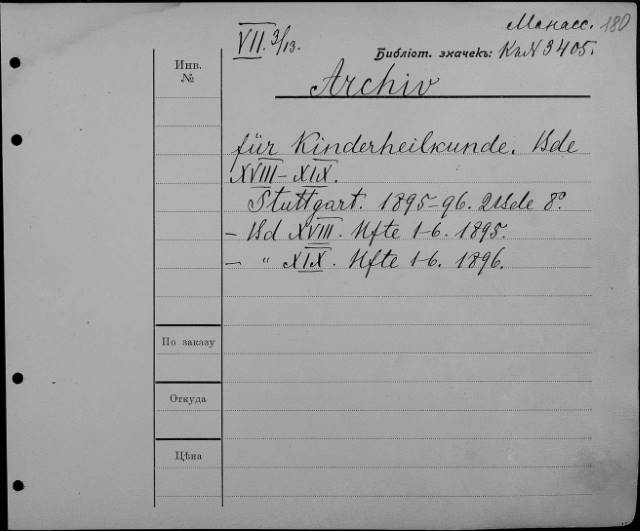 Манасс. 180
VII. 3/13.
Библіот. значекъ: КкN 3405.
Инв.
№
Archiv
für Kinderheilkunde. Bde
XVIII–XIX.
Stuttgart. 1895–96. 2 Bde 8º.
– Bd XVIII. Hfte 1-6. 1895.
– „ XIX. Hfte 1-6. 1896.
По заказу
Откуда
Цѣна